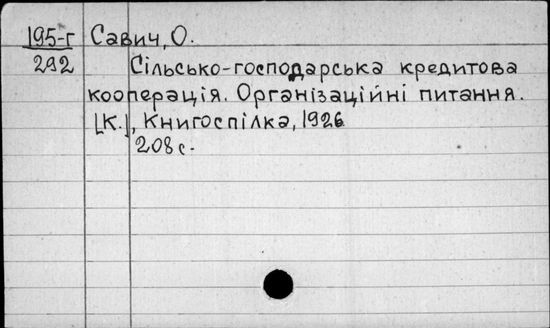 195-г Савич, О.
292 Сільсько-господарська кредитова
кооперація. Організаційні питання.
[К.], Книгоспілка, 1926.
208 с.